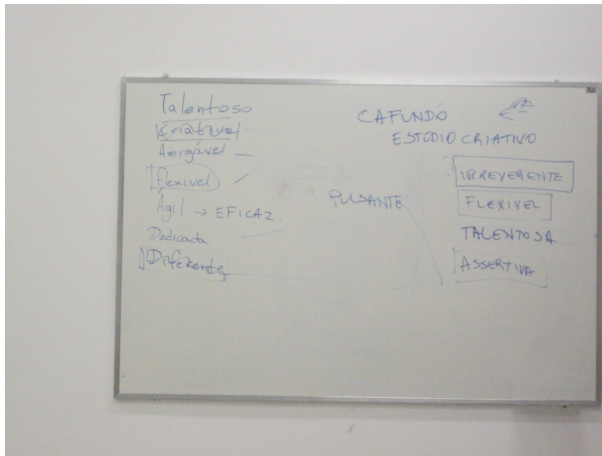 Talentoso
Amigável
flexível
Ágil → EFICAZ
Dedicada
Diferente
CAFUNDÓ
ESTÚDIO CRIATIVO
PULSANTE
IRREVERENTE
FLEXIVEL
TALENTOSA
ASSERTIVA